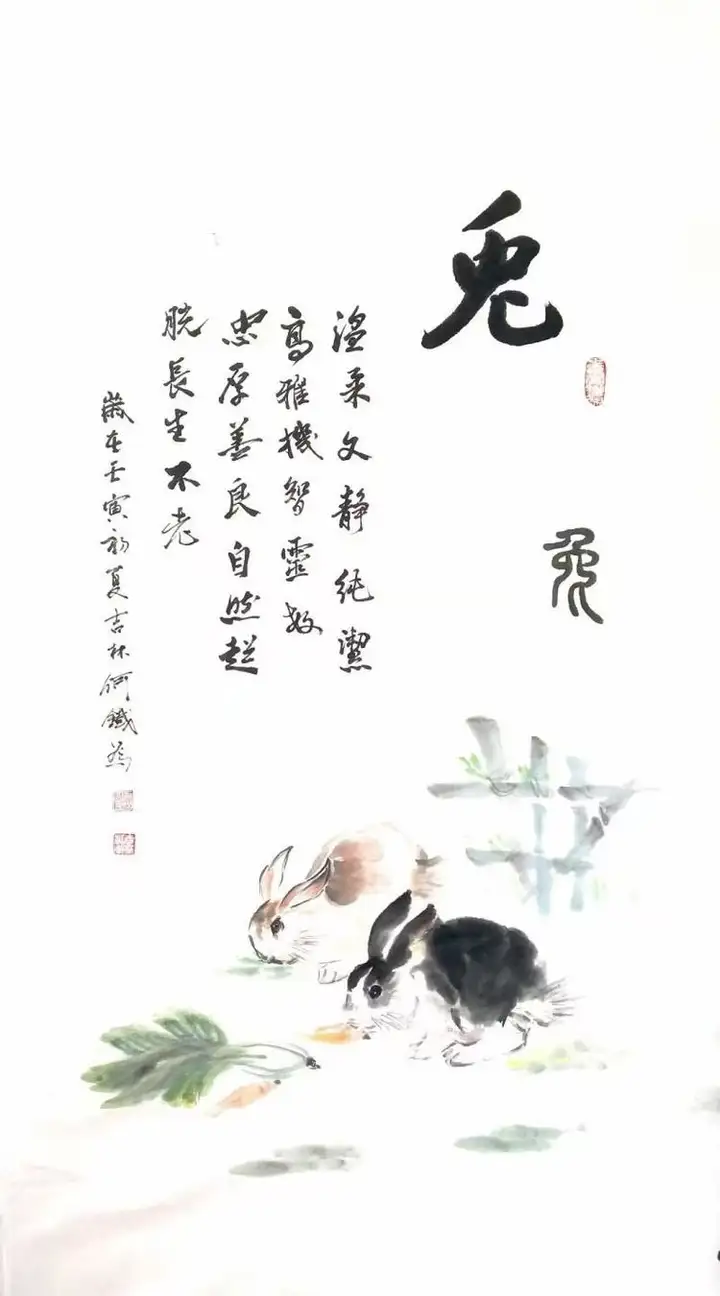 兔
兔
温柔文静純潔
高雅機智靈敏
忠厚善良自然超
脱長生不老
歲在壬寅初夏吉林何鐵為